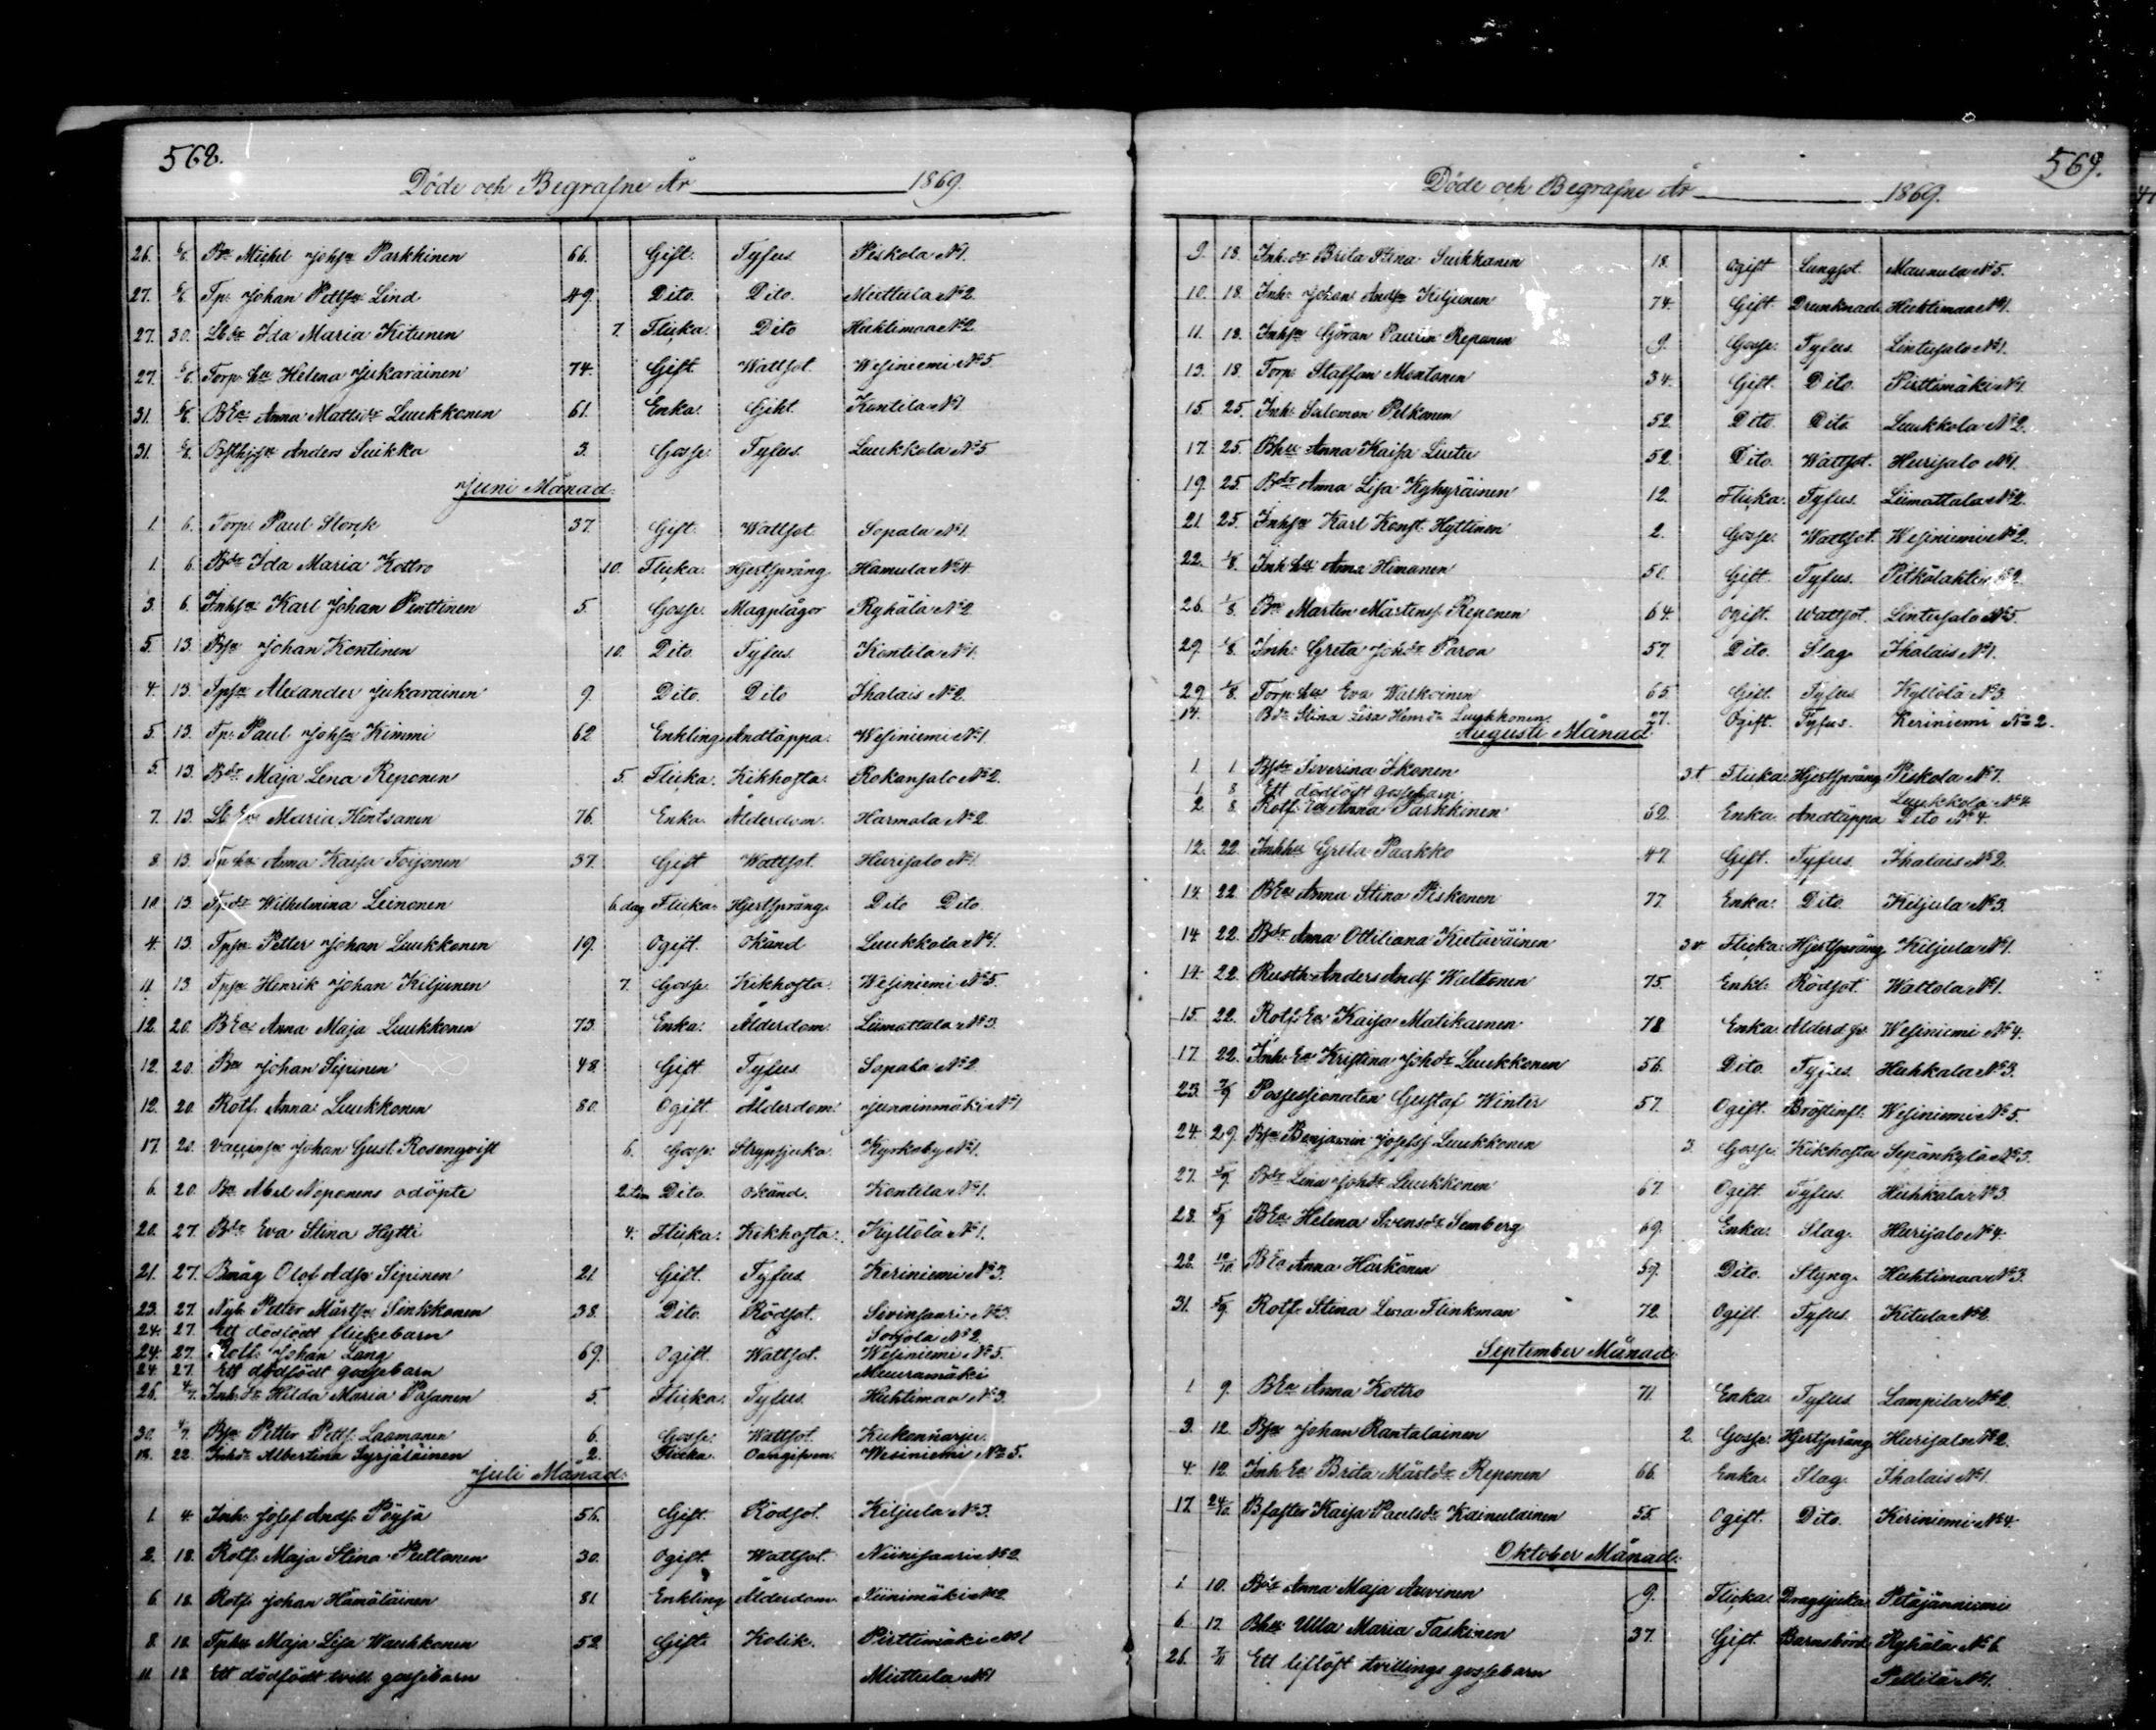 568.
Döde och Begrafne År 1869.
26. 6/6. Bn Michel Johsn Parkkinen 66. Gift. Tyfus. Piskola No 1.
27. 6/6. Tp: Johan Pettsn Lind 49. Dito. Dito. Miettula No 2.
27. 30. Lbdr Ida Maria Kitunen 7. Flicka. Dito Huhtimaa No 2.
27. 6/6. Torp: hu Helena Jukaräinen 74. Gift. Wattsot. Wesiniemi No 5.
31. 6/6. BEa Anna Mattsdr Luukkonen 61. Enka. Gikt. Kontila No 1.
31. 6/6. Anders Suikka 3. Gosse. Tyfus. Luukkola No 5.
Juni Månad.
1. 6. Torp: Paul Storck 37. Gift. Wattsot. Sopala No 1.
1. 6. Bdr Ida Maria Kottro 10. Flicka. Hjertsprång Hamula No 4.
3. 6. Inhsn Karl Johan Penttinen 5. Gosse. Magplågor Ryhälä No 2.
5. 13. Bsn Johan Kontinen 10. Dito. Tyfus. Kontila No 1.
4. 13. Tpsn Alexander Jukarainen 9. Dito. Dito Ihalais No 2.
5. 13. Tp: Paul Johsn Kimmi 62. Enkling. Andtäppa. Wesiniemi No 1.
5. 13. Bdr Maja Lena Reponen 5. Flicka. Kikhosta. Rokansalo No 2.
7. 13. Lb Ea Maria Hintsanen 76. Enka. Ålderdom. Harmala No 2.
8. 13. Tp hu Anna Kaisa Toijonen 37. Gift Wattsot. Hurisalo No 1.
10. 13. Tpdr Wilhelmina Leinonen 6. dag Flicka. Hjertsprång. Dito Dito
4. 13. Tpsn Petter Johan Luukkonen 19. Ogift. Okänd Luukkola No 1.
11. 13. Tpsn Henrik Johan Kiljunen 7. Gosse. Kikhosta. Wesiniemi No 5.
12. 20. BEa Anna Maja Luukkonen 73. Enka. Ålderdom. Liimattala No 3.
12. 20. Bn Johan Sipinen 48. Gift Tyfus Sopala No 2.
12. 20. Rotf. Anna Luukkonen 80. Ogift. Ålderdom. Junninmäki No 1
17. 20. Johan Gust. Rosenqvist 6. Gosse. Strypsjuka. Kyrkoby No 1.
6. 20. Bn Abel Noponens odöpte 2. tim Dito. Okänd. Kontila No 1.
20. 27. Bdr Eva Stina Hytti 4. Flicka. Kikhosta. Kyllölä No 1.
21. 27. Bmåg Olof Adsn Sipinen 21. Gift. Tyfus. Keriniemi No 3.
23. 27. Nyb. Petter Mårtsn Sinkkonen 38. Dito. Rödsot. Sivinsaari No 3.
24. 27. Ett dödfödt flickebarn Sorjola No 2.
24. 27. Rotf. Johan Lang 69. Ogift. Wattsot. Wesiniemi No 5.
24. 27. Ett dödfödt gossebarn Muuramäki
25. 4/7. Inh. dr Hilda Maria Pasanen 5. Flicka. Tyfus. Huhtimaa No 3.
30. 4/7. Bsn Petter Petts. Laamanen 6. Gosse. Wattsot. Kukonharju.
18. 22. Inhdr Albertina Syrjäläinen 2. Flicka. Oangifven. Wesiniemi No 5.
Juli Månad.
1. 4. Inh: Josef Ands. Pöyjä 56. Gift. Rödsot. Kiljula No 3.
2. 18. Rotf: Maja Stina Puttonen 30. Ogift. Wattsot. Niinisaari No 2.
6. 18. Rotf: Johan Hämäläinen 81. Enkling Ålderdom. Niinimäki No 2
8. 18. Tphu Maja Lisa Wauhkonen 52. Gift. Kolik. Pirttimäki No 1
11. 18. Ett dödfödt tvill gossebarn Miettula No 1
569.
Döde och Begrafne År 1869.
9. 18. Inh. dr Brita Stina Suikkanen 18. Ogift Lungsot. Maunula No 5.
10. 18. Inh: Johan Andsn Kiljunen 74. Gift Drunknad. Huhtimaa No 1.
11. 18. Inhsn Göran Paulin Reponen 9. Gosse. Tyfus. Lintusalo No 1.
13. 18. Torp: Staffan Montonen 34. Gift. Dito. Pirttimäki No 1.
15. 25. Inh: Salomon Pelkonen 52. Dito Dito Luukkola No 2.
17. 25. Bhu Anna Kaisa Liuta 52. Dito. Wattsot. Hurisalo No 1.
19. 25. Bdr Anna Lisa Kyhyräinen 12. Flicka. Tyfus. Liimattala No 2.
21. 25. Inhsn Karl Konst. Hyttinen 2. Gosse. Wattsot. Wesiniemi No 2.
22. 1/8. Inh hu Anna Himanen 50. Gift. Tyfus. Pitkälahti No 2.
26. 1/8. Bn Mårten Mårtens. Reponen 64. Ogift. Wattsot. Lintusalo No 5.
29. 1/8. Inh: Greta Johdr Paroa 57. Dito. Slag. Ihalais No 1.
29. 1/8. Torp: hu Eva Walkoinen 65 Gift. Tyfus Kyllölä No 3.
14. Bdr Stina Lisa Henrdr Luukkonen 27. Ogift. Tyfus. Keriniemi No 2.
Augusti Månad.
1. 1. Bsdr Siverina Ikonen 3 t Flicka. Hjertsprång Piskola No 7.
1. 8. Ett dödfödt gossebarn Luukkola No 4
2. 8. Rotf: Ea Anna Parkkinen 52. Enka. Andtäppa Dito No 4.
12. 22. Inhhu Greta Paakko 47. Gift. Tyfus. Ihalais No 2.
14. 22. BEa Anna Stina Piskonen 77. Enka. Dito. Kiljula No 3.
14. 22. Bdr Anna Ottiliana Kietäväinen 3 v Flicka. Hjertsprång Kiljula No 1.
14. 22. Rusth: Anders Ands. Waltonen 75. Enkl: Rödsot. Wattola No 1.
15. 22. Rotf: Ea Kaisa Matikainen 78 Enka. Wesiniemi No 4.
17. 22. Inh: Ea Kristina Johdr Luukkonen 56. Dito. Tyfus. Huhkala No 3.
23. 5/9 Possessionaten Gustaf Winter 57. Ogift. Bröstinfl: Wesiniemi No 5.
24. 29. Bsn Benjamin Josefs. Luukkonen 3. Gosse. Kikhosta Sepänkylä No 3.
27. 5/9. Bdr Lena Johdr Luukkonen 67. Ogift. Tyfus. Huhkala No 3.
28. 5/9 BEa Helena Svensdr Semberg 69. Enka. Slag. Hurisalo No 4.
28. 10/10. BEa Anna Härkönen 59. Dito. Styng. Huhtimaa No 3.
31. 5/9. Rotf: Stina Lena Flinkman 72. Ogift. Tyfus. Kitula No 2.
September Månad.
1. 9. BEa Anna Kottro 71. Enka. Tyfus Lampila No 2.
3. 12. Bsn Johan Rantalainen 2. Gosse. Hjertsprång. Hurisalo No 2.
4. 12. Inh Ea Brita Mårtdr Reponen 66. Enka. Slag. Ihalais No 1.
17. 24/10. Bfaster Kaisa Paulsdr Kainulainen 55. Ogift. Dito. Keriniemi No 4.
Oktober Månad.
1. 10. Bdr Anna Maja Auvinen 9. Flicka. Dragsjuka. Petäjäniemi
6. 17. Bhu Ulla Maria Taskinen 37. Gift. Barnsbörd Ryhälä No 6.
26. 7/11 Ett liflöst tvillings gossebarn Pellilä No 1.